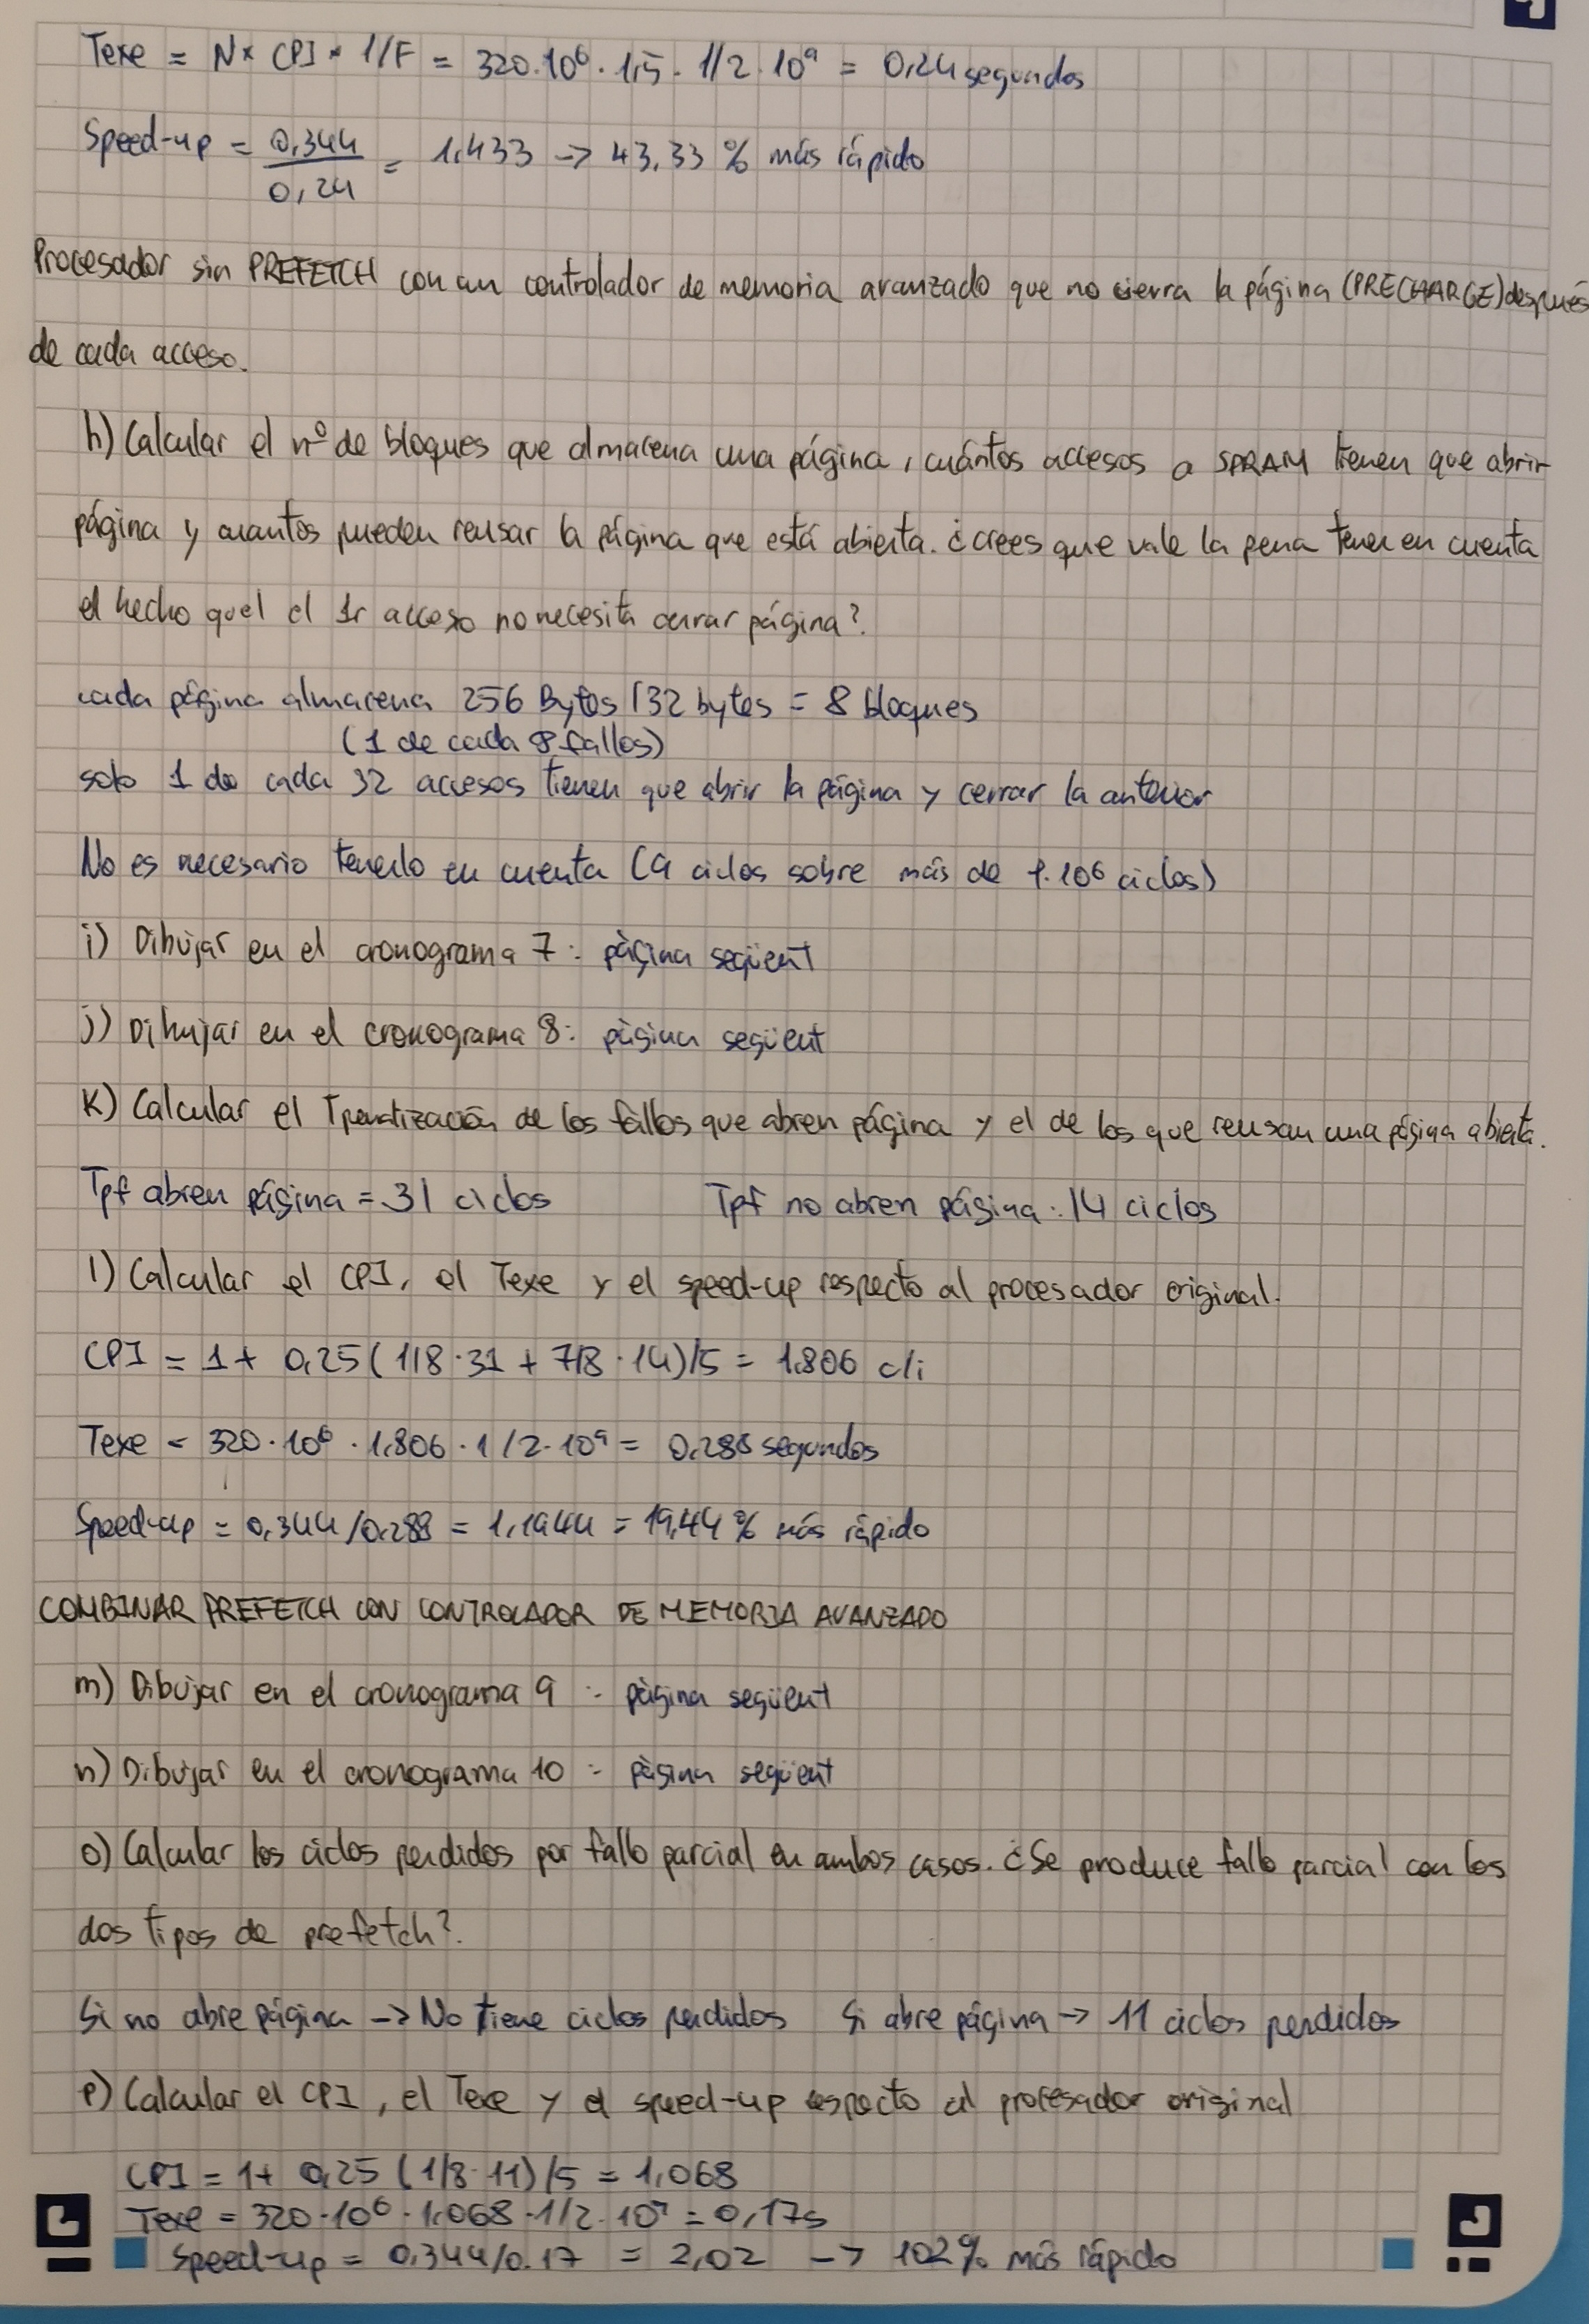 Texe = N x CPI * 1/F = 320·10⁶ · 1,5 · 1/2·10⁹ = 0,24 segundos
Speed-up = 0,344 / 0,24 = 1,433 -> 43,33 % más rápido
Procesador sin PREFETCH con un controlador de memoria avanzado que no cierra la página (PRECHARGE) después
de cada acceso.
h) Calcular el nº de bloques que almacena una página, cuántos accesos a SDRAM tienen que abrir
página y cuantos pueden reusar la página que está abierta. ¿crees que vale la pena tener en cuenta
el hecho quel el 1r acceso no necesita cerrar página?.
cada página almacena 256 Bytes / 32 bytes = 8 bloques
(1 de cada 8 fallos)
solo 1 de cada 32 accesos tienen que abrir la página y cerrar la anterior
No es necesario tenerlo en cuenta (9 ciclos sobre más de 1·10⁶ ciclos)
i) Dibujar en el cronograma 7: pàgina següent
j) Dibujar en el cronograma 8: pàgina següent
K) Calcular el Tpenalización de los fallos que abren página y el de los que reusan una página abierta.
Tpf abren página = 31 ciclos Tpf no abren página: 14 ciclos
l) Calcular el CPI, el Texe y el speed-up respecto al procesador original.
CPI = 1 + 0,25 (1/8 · 31 + 7/8 · 14)/5 = 1.806 c/i
Texe = 320·10⁶ · 1.806 · 1/2·10⁹ = 0,288 segundos
Speed-up = 0,344/0,288 = 1,1944 = 19,44 % más rápido
COMBINAR PREFETCH CON CONTROLADOR DE MEMORIA AVANZADO
m) Dibujar en el cronograma 9 : pàgina següent
n) Dibujar en el cronograma 10 : pàgina següent
o) Calcular los ciclos perdidos por fallo parcial en ambos casos. ¿Se produce fallo parcial con los
dos tipos de prefetch?.
Si no abre página -> No tiene ciclos perdidos Si abre página -> 11 ciclos perdidos
p) Calcular el CPI, el Texe y el speed-up respecto al procesador original
CPI = 1 + 0,25 (1/8 · 11)/5 = 1,068
Texe = 320·10⁶ · 1,068 · 1/2·10⁹ = 0,17s
Speed-up = 0,344/0.17 = 2,02 -> 102% más rápido